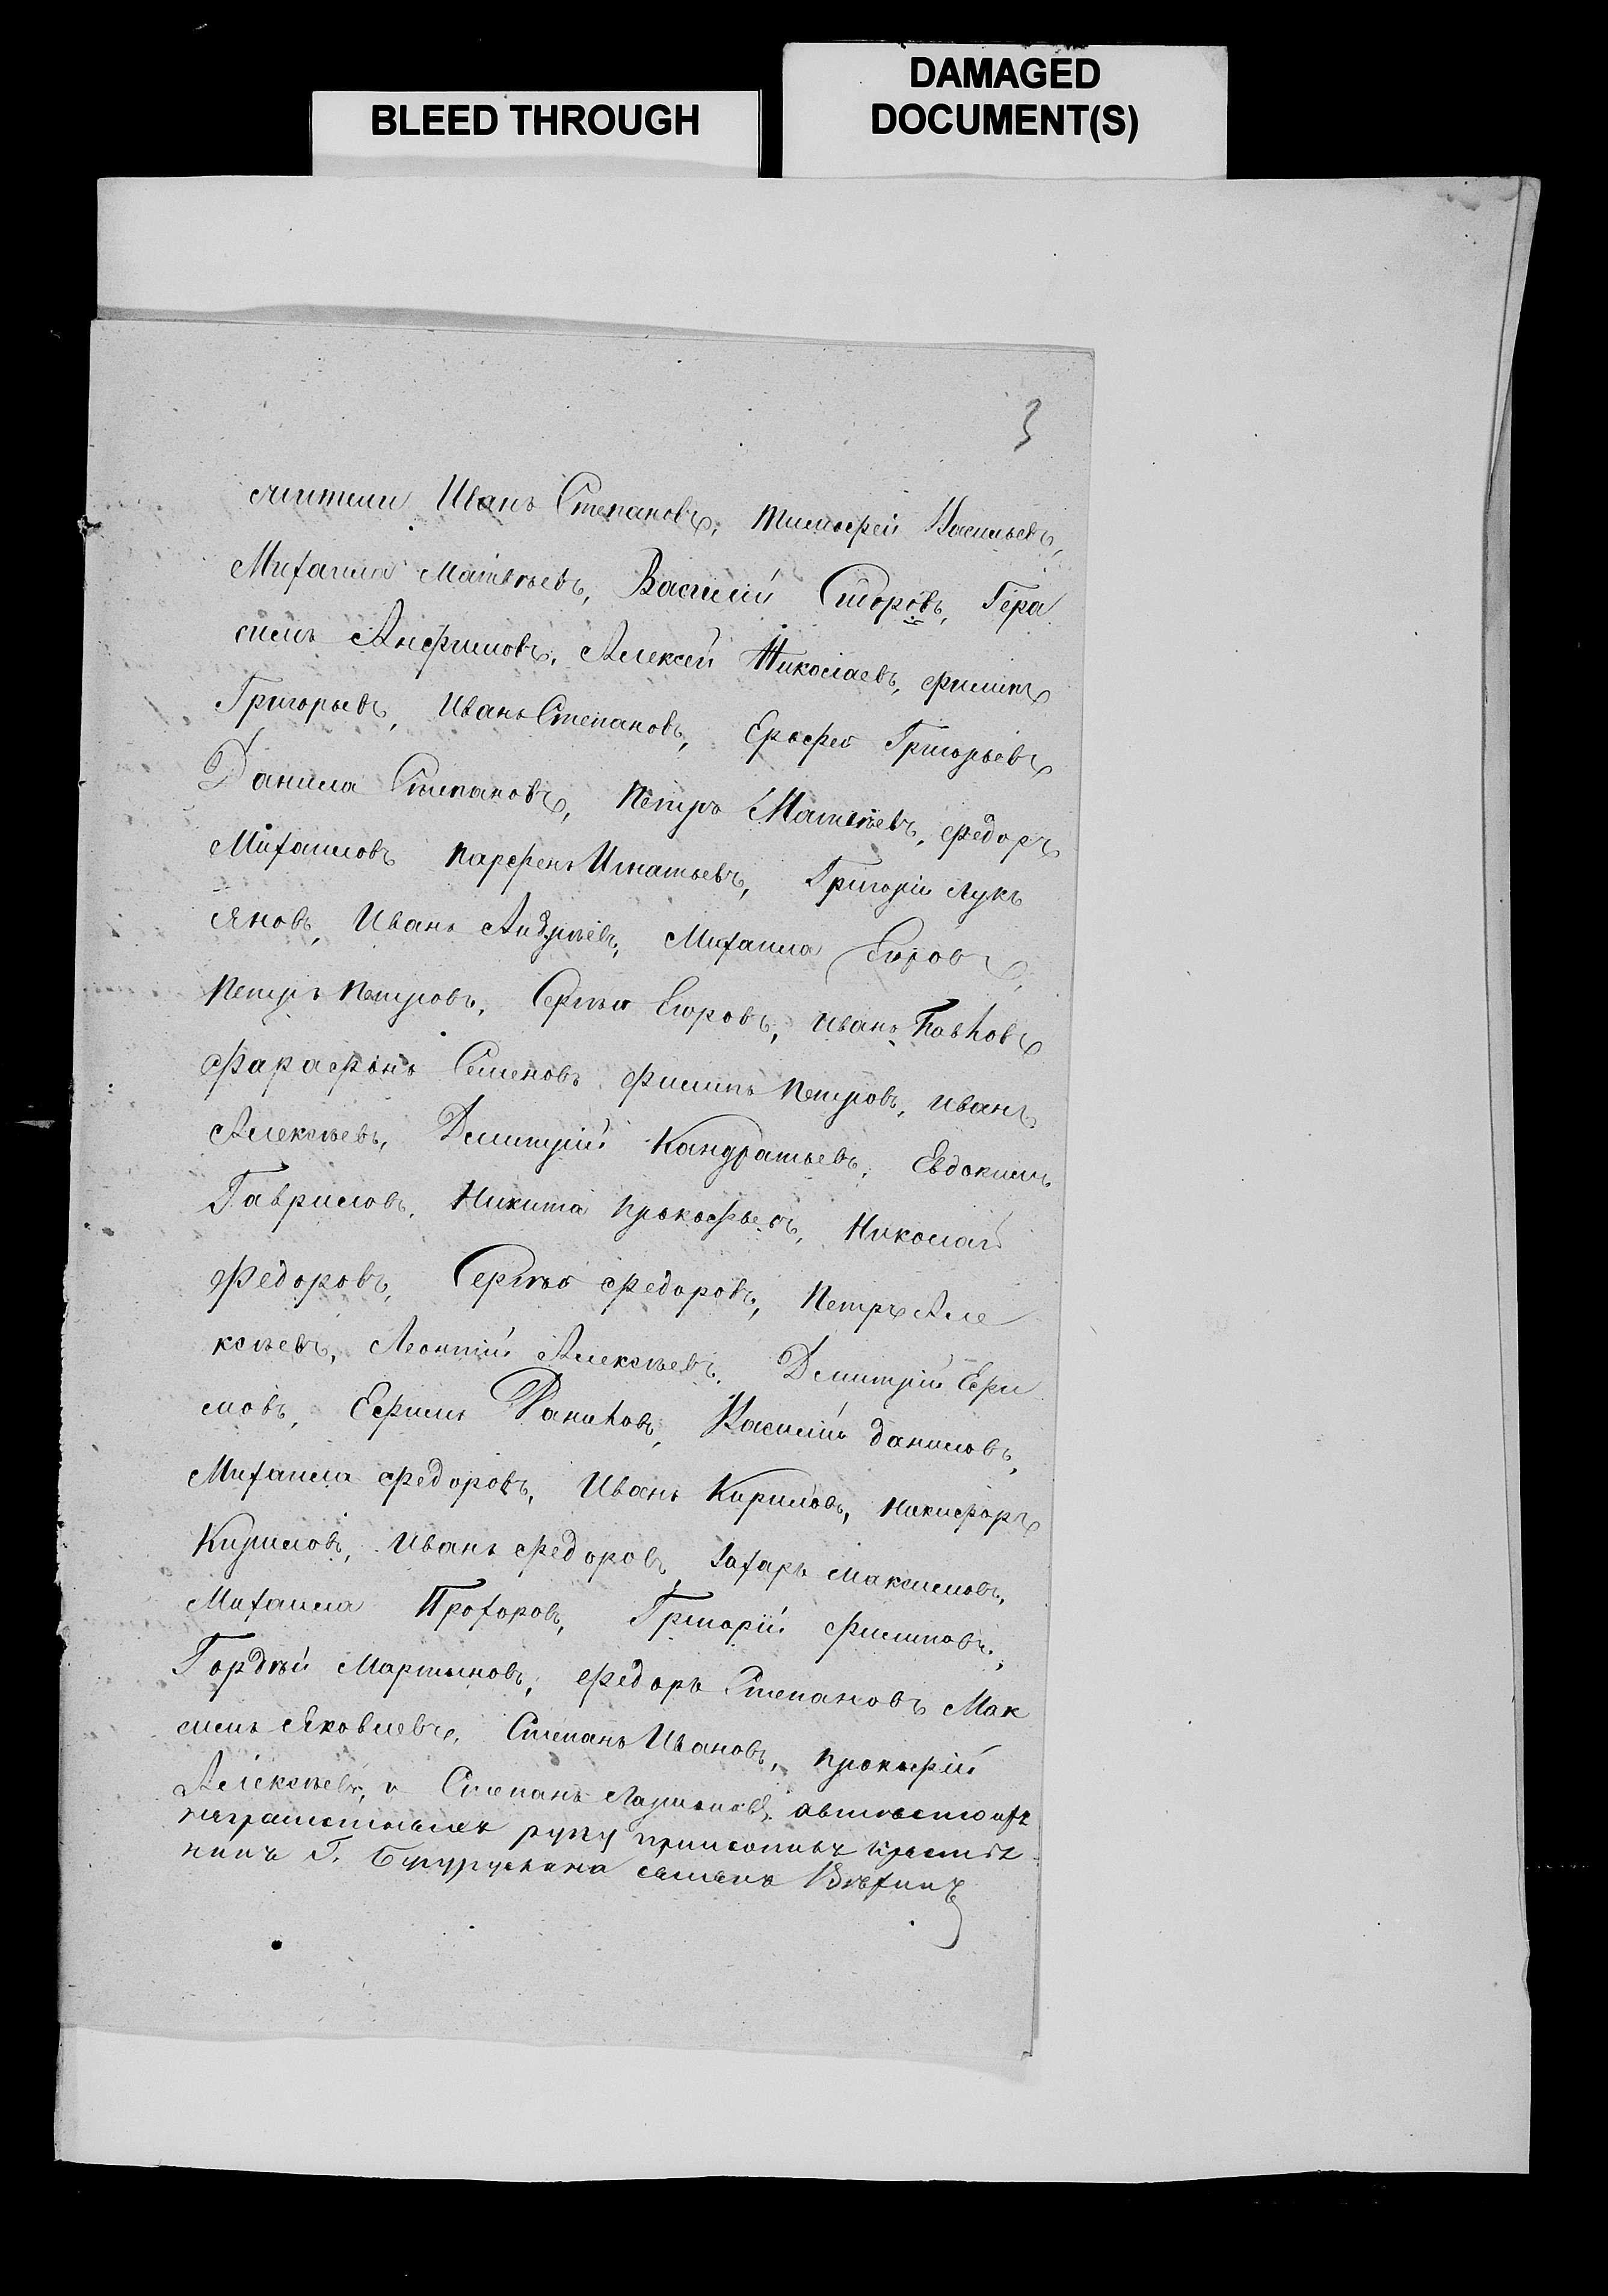 BLEED THROUGH
DAMAGED
DOCUMENT(S)
3
Иванъ Степановъ, Тимофей Васильевъ,
Михаила Матвѣевъ, Василий Сидоровъ, Гера
симъ Анфимовъ, Алексей Николаевъ, Филипъ
Григорьевъ, Иванъ Степановъ, Ерофей Григорьевъ
Данила Степановъ, Петръ Матвѣевъ, Федоръ
Михаиловъ Парфенъ Игнатьевъ, Григорій Лукь
яновъ, Иванъ Андрѣевъ, Михаила Егоровъ,
Петръ Петровъ, Сергѣй Егоровъ, Иванъ Павловъ
Семеновъ Филипъ Петровъ, Иванъ
Алексѣевъ, Дмитрій Кандратьевъ, Евдокимъ
Гавриловъ, Никита Прокофьевъ, Николай
Федоровъ, Сергѣй Федоровъ, Петръ Але
ксѣевъ, Леонтій Алексѣевъ, Дмитрій Ефи
мовъ, Ефимъ Даниловъ, Василій Даниловъ,
Михаила Федоровъ, Иванъ Кириловъ, Никифоръ
Кириловъ, Иванъ Федоровъ, Захаръ Максимовъ,
Михаила Прохоровъ, Григорій Филиповъ,
Гордѣй Мартыновъ, Федоръ Степановъ Мак
симъ Яковлевъ, Степанъ Ивановъ, Прокофій
Алексѣевъ, и Степанъ Ларионовъ, а вместо ихъ
неграмотныхъ руку приложилъ крестья
нинъ Г. Бугуруслана